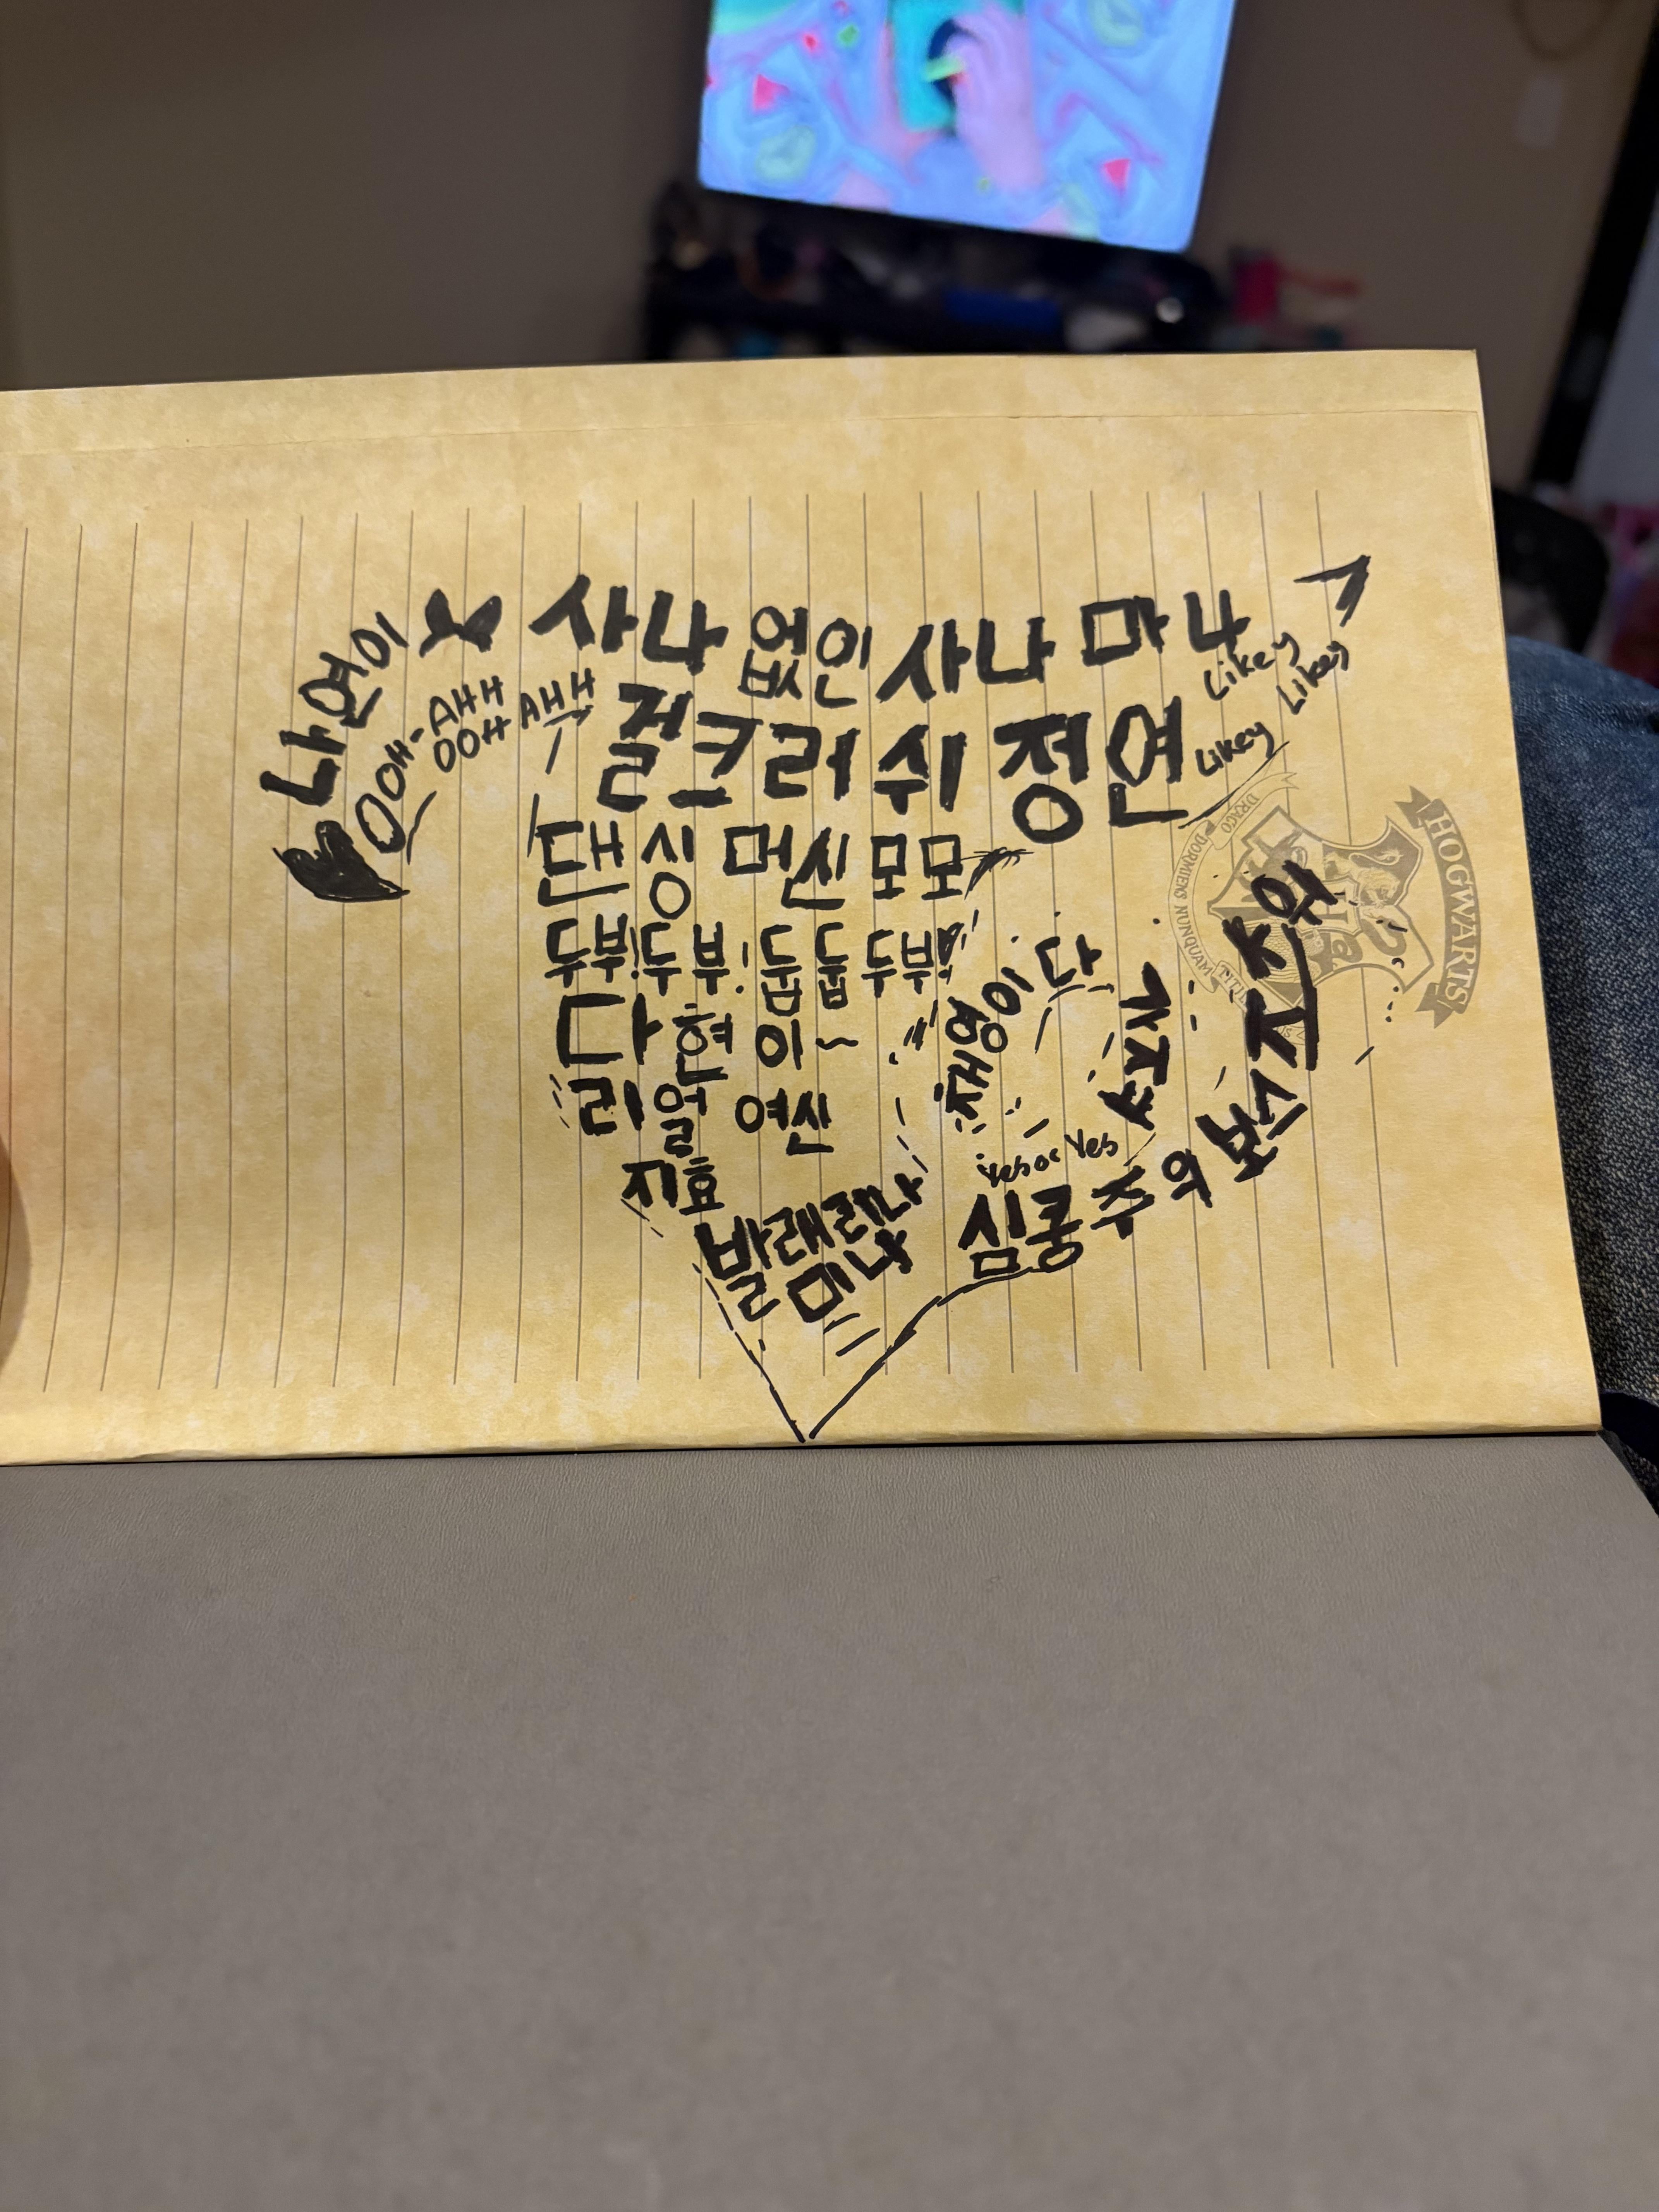 나연이
OOH-AHH
OOH AHH
사나 없인 사나 마나
Likey
Likey
Likey
걸크러쉬 정연
댄싱 머신 모모
두부! 두부! 둡둡 두부!
다현이~
리얼 여신
지효
발램린
심쿵주의 보
쯔
채영이다
Yes or Yes
HOGWARTS
DRACO DORMIENS NUNQUAM TITIL